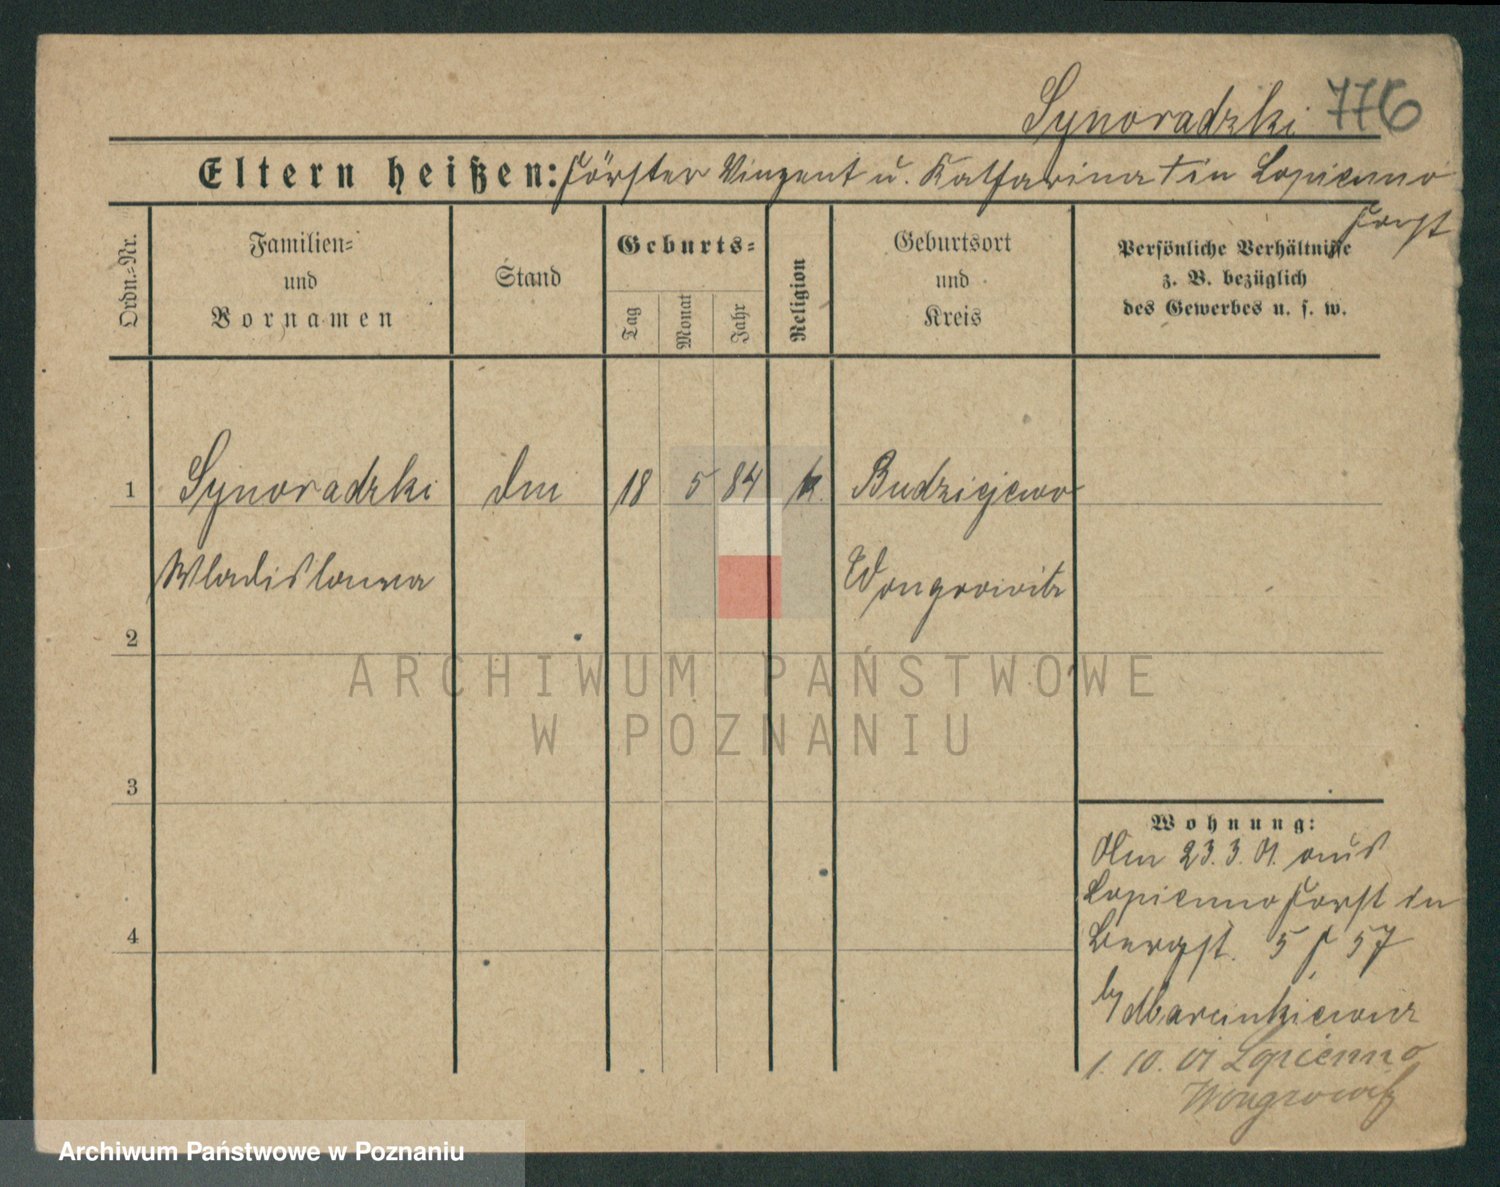 Synoradzki 776
Eltern heißen: Förster Vinzent u. Katharina † in Lopienno
Forst
Ordn.-Nr.
Familien-
und
Vornamen
Stand
Geburts-
Tag
Monat
Jahr
Religion
Geburtsort
und
Kreis
Persönliche Verhältnisse
z. B. bezüglich
des Gewerbes u. s. w.
1 Synoradzki 18 5 84 k. Budziejewo
Wladislawa Wongrowitz
2
3
4
Wohnung:
Am 23.3.01. aus
Lopienno Forst in
Bergst. 57
b/ Marcinkiewicz
1. 10. 01 Lopienno
Wongrowitz
ARCHIWUM PAŃSTWOWE
W POZNANIU
Archiwum Państwowe w Poznaniu